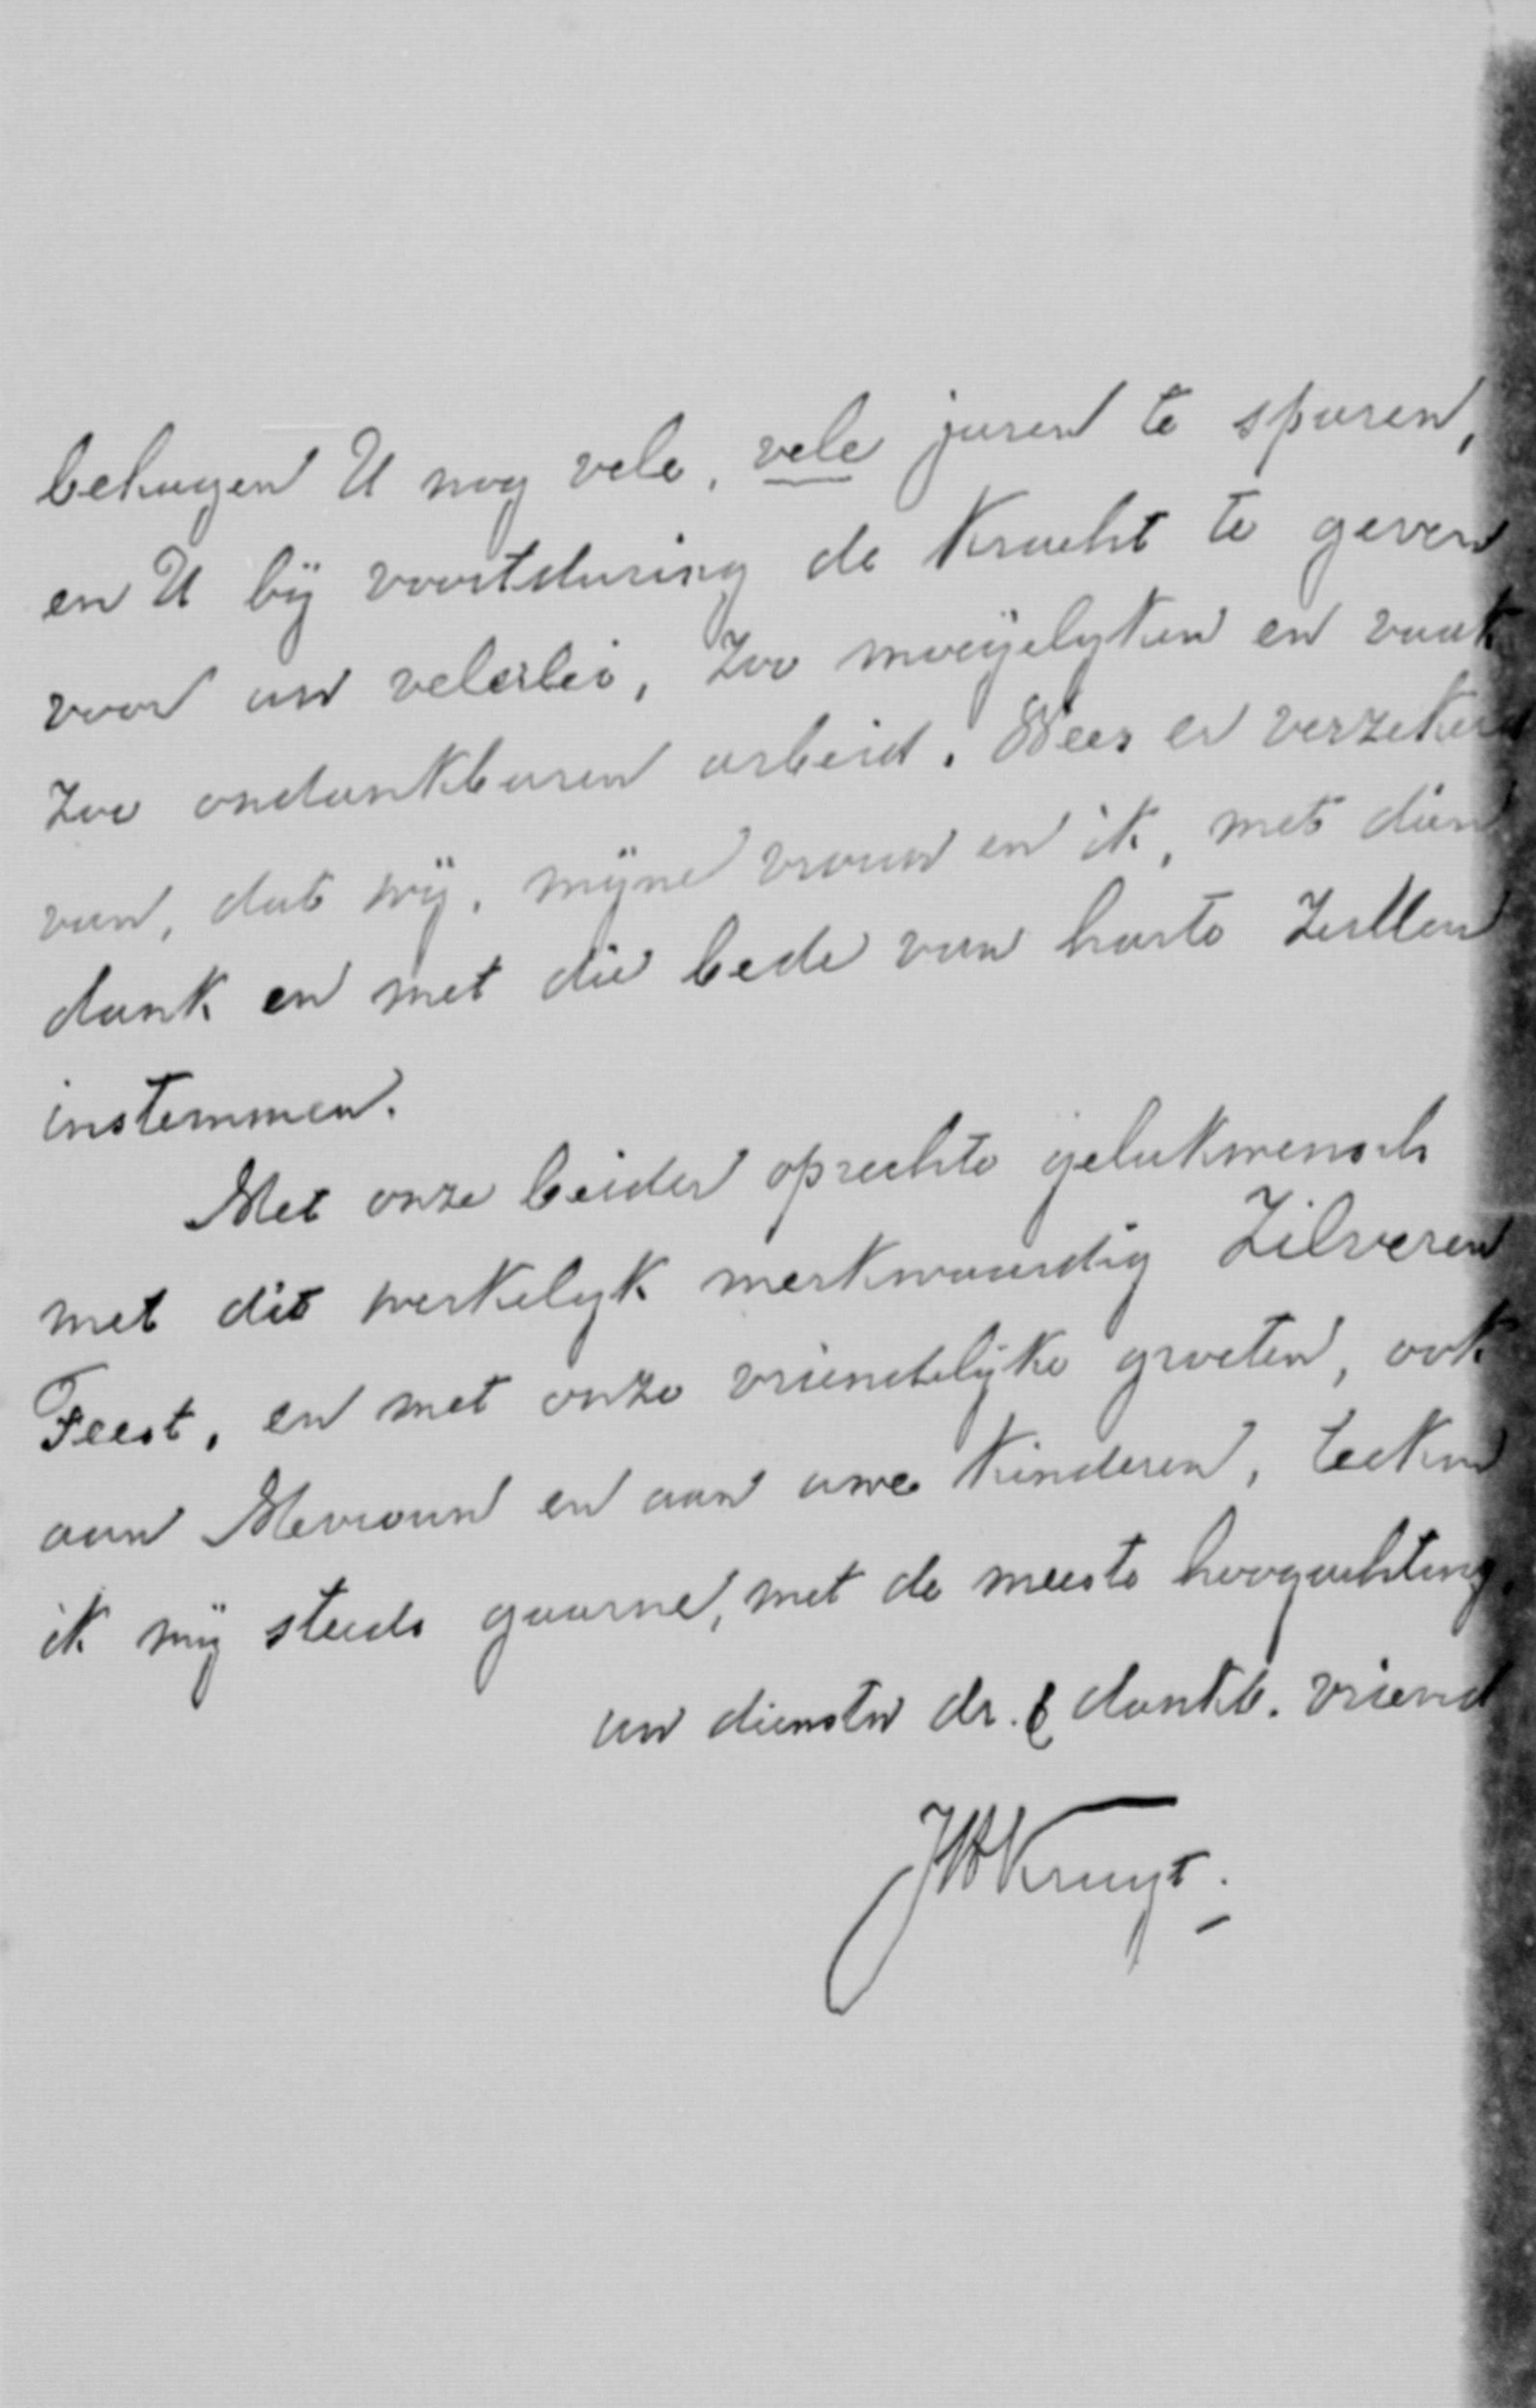 behagen U nog vele, vele jaren te sparen,
en U bij voortduring de kracht te geven
voor uw velerlei, zoo moeijelijken en vaak
zoo ondankbaren arbeid. Wees er verzekerd
van, dat wij, mijne vrouw en ik, met dien
dank en met die bede van harte zullen
instemmen.
Met onze beider oprechte gelukwensch
met dit werkelijk merkwaardig Zilveren
Feest, en met onze vriendelijke groeten, ook
aan Mevrouw en aan uwe kinderen, teeken
ik mij steeds gaarne, met de meeste hoogachting,
uw dienstw dr. & dankb. vriend
JWKruyt.